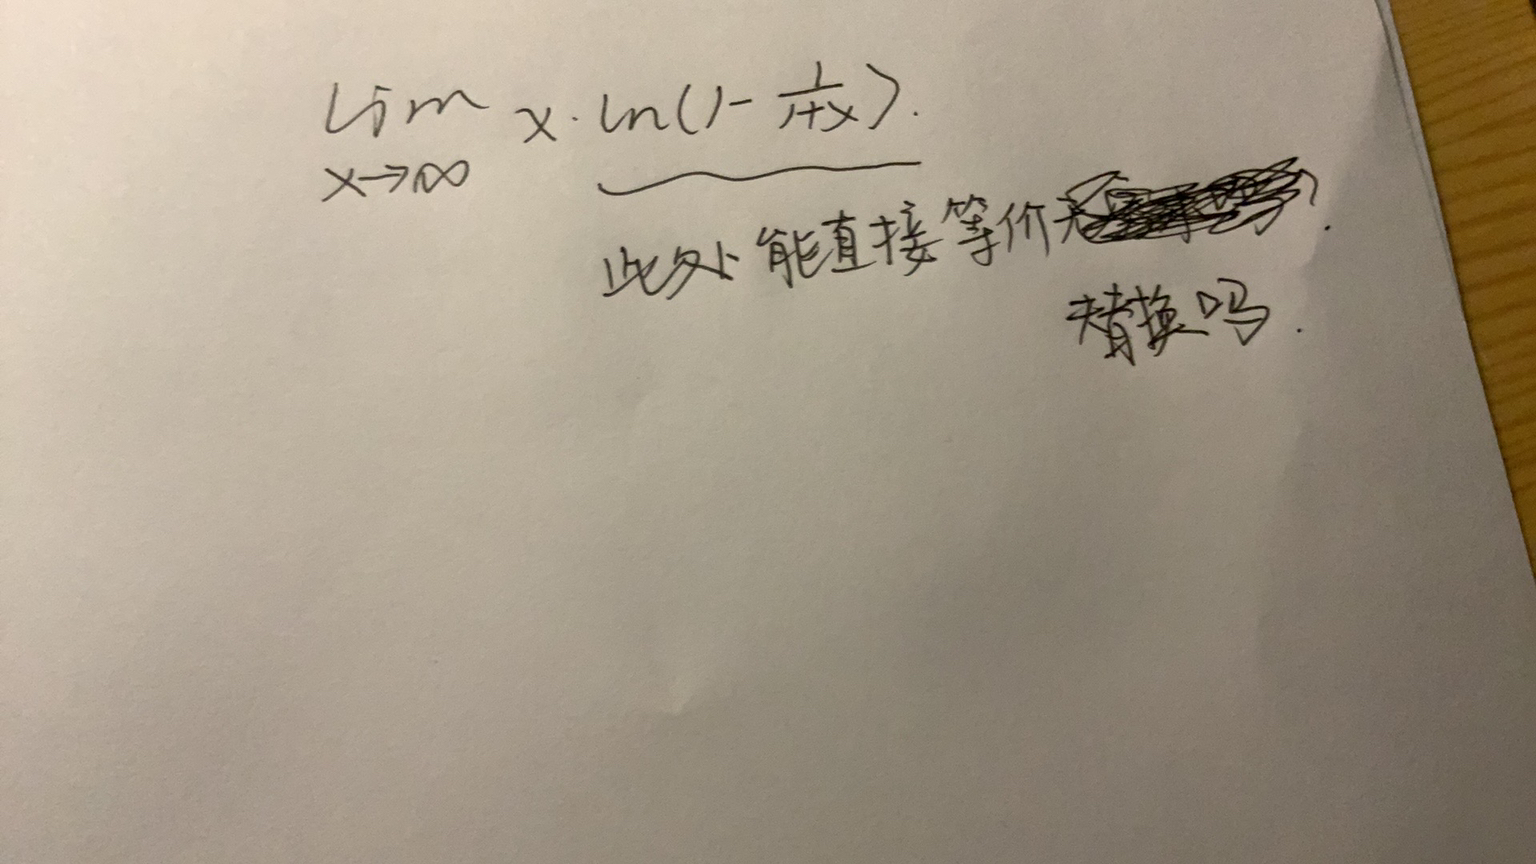 lim x·ln(1-1/(1+x)).
x→∞
此处能直接等价
替换吗.